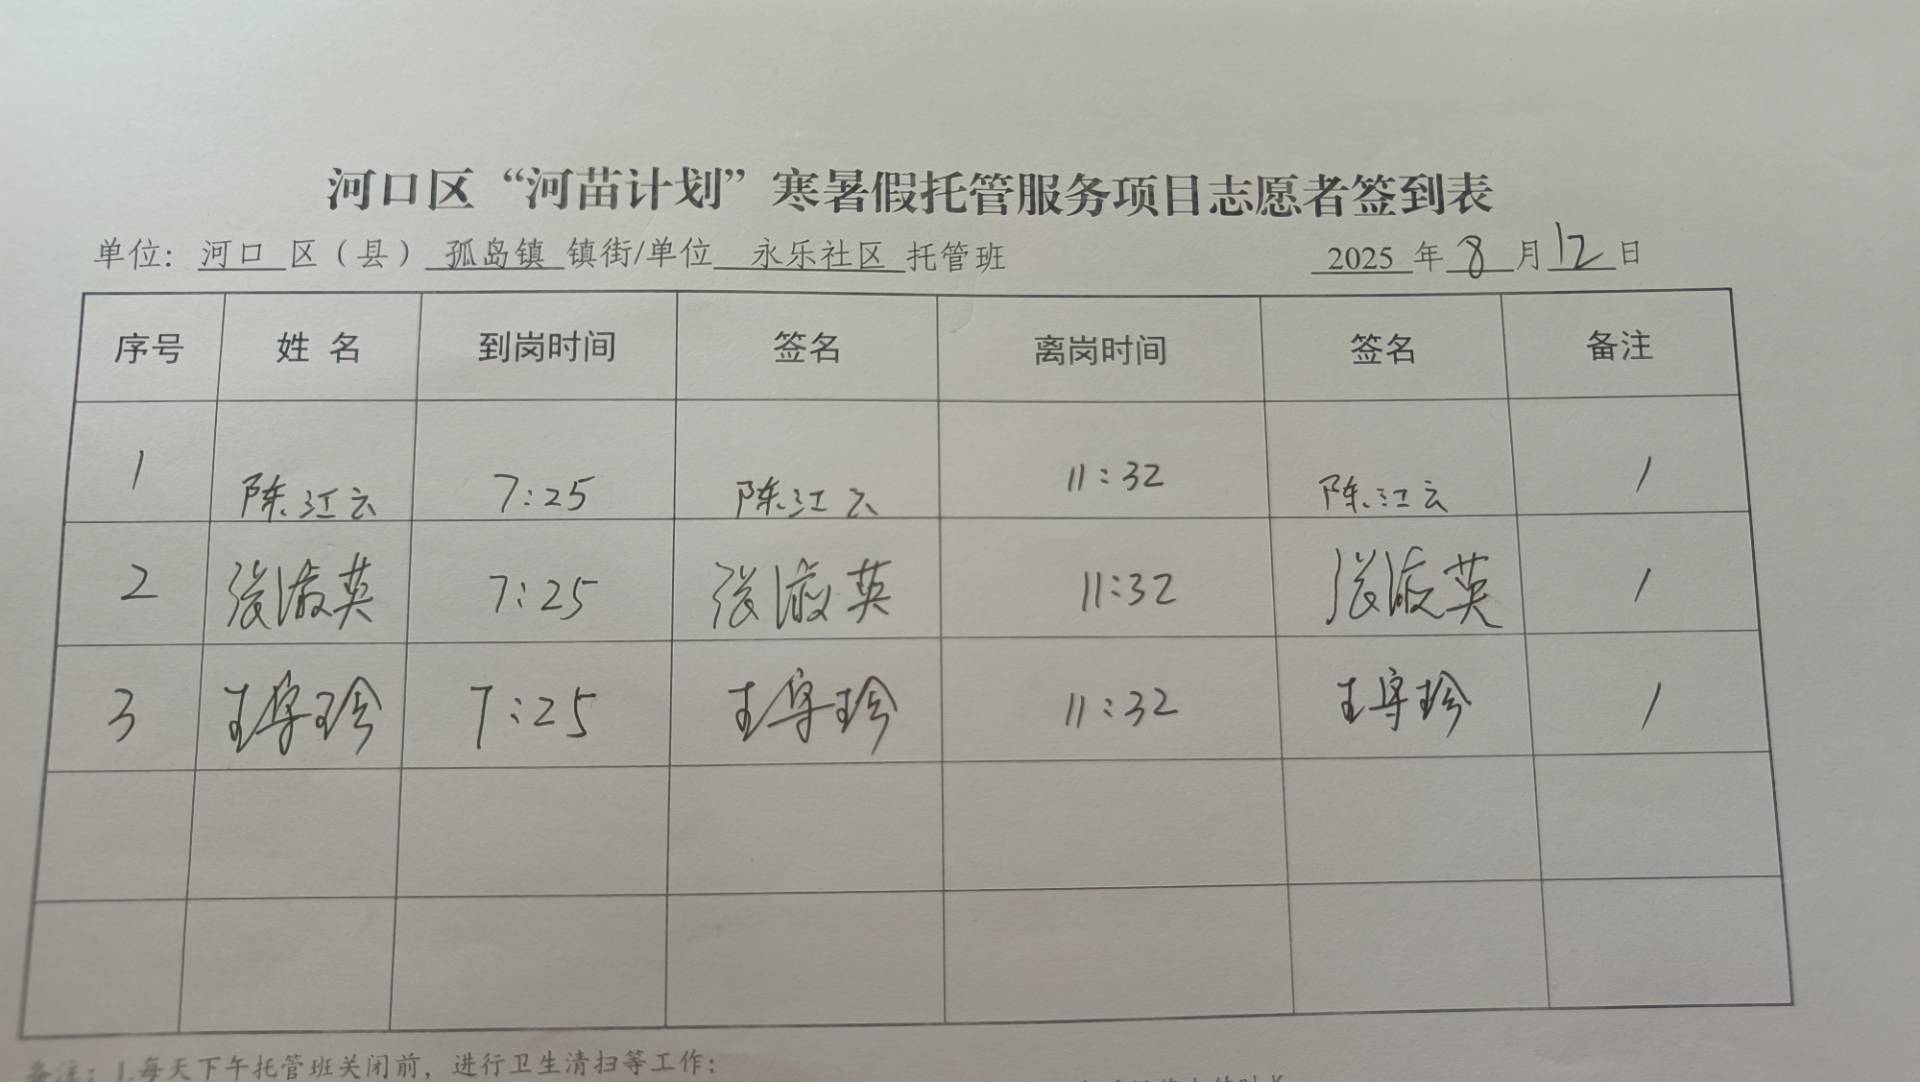 河口区“河苗计划”寒暑假托管服务项目志愿者签到表
单位：河口 区（县） 孤岛镇 镇街/单位 永乐社区 托管班 2025 年 8 月 12 日
序号 姓 名 到岗时间 签名 离岗时间 签名 备注
1 陈江云 7:25 陈江云 11:32 陈江云 /
2 张淑英 7:25 张淑英 11:32 张淑英 /
3 王守珍 7:25 王守珍 11:32 王守珍 /
备注：1.每天下午托管班关闭前，进行卫生清扫等工作；